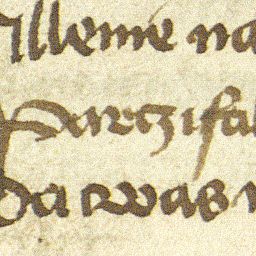 Alleine na
Parzifal
Da was